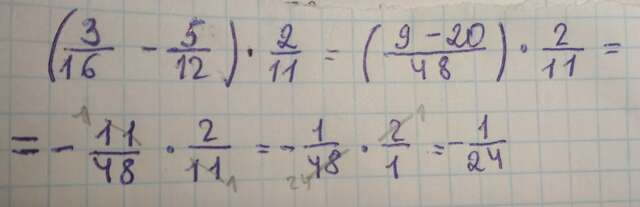 (3/16 - 5/12) · 2/11 = (9-20/48) · 2/11 =
= - 11/48 · 2/11 = - 1/48 · 2/1 = - 1/24